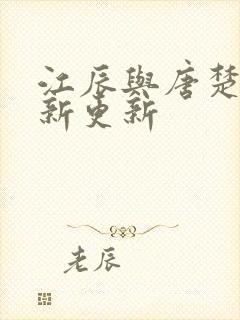 江辰與唐楚
新更新
老辰